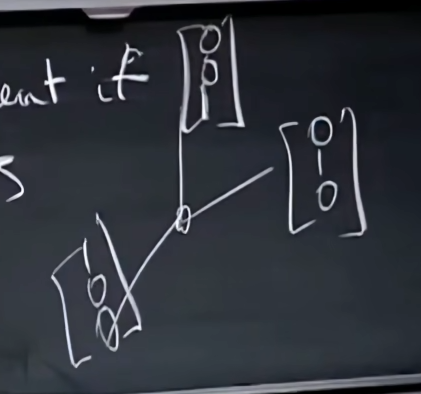 ent if
s
[0
0
1]
[0
1
0]
[1
0
0]